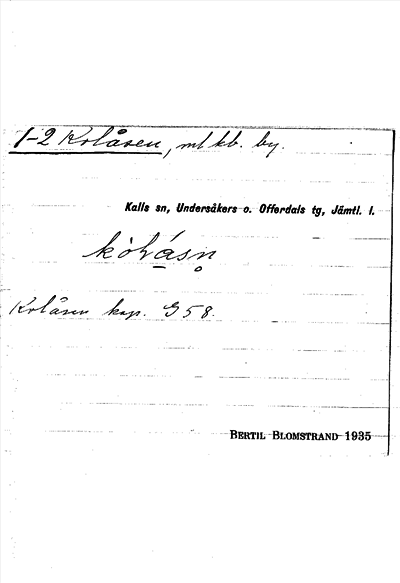 1-2 Kolåsen, ml kb. by.
Kalls sn, Undersåkers o. Offerdals tg, Jämtl. l.
Kolåsen kap. G 58.
BERTIL BLOMSTRAND 1935